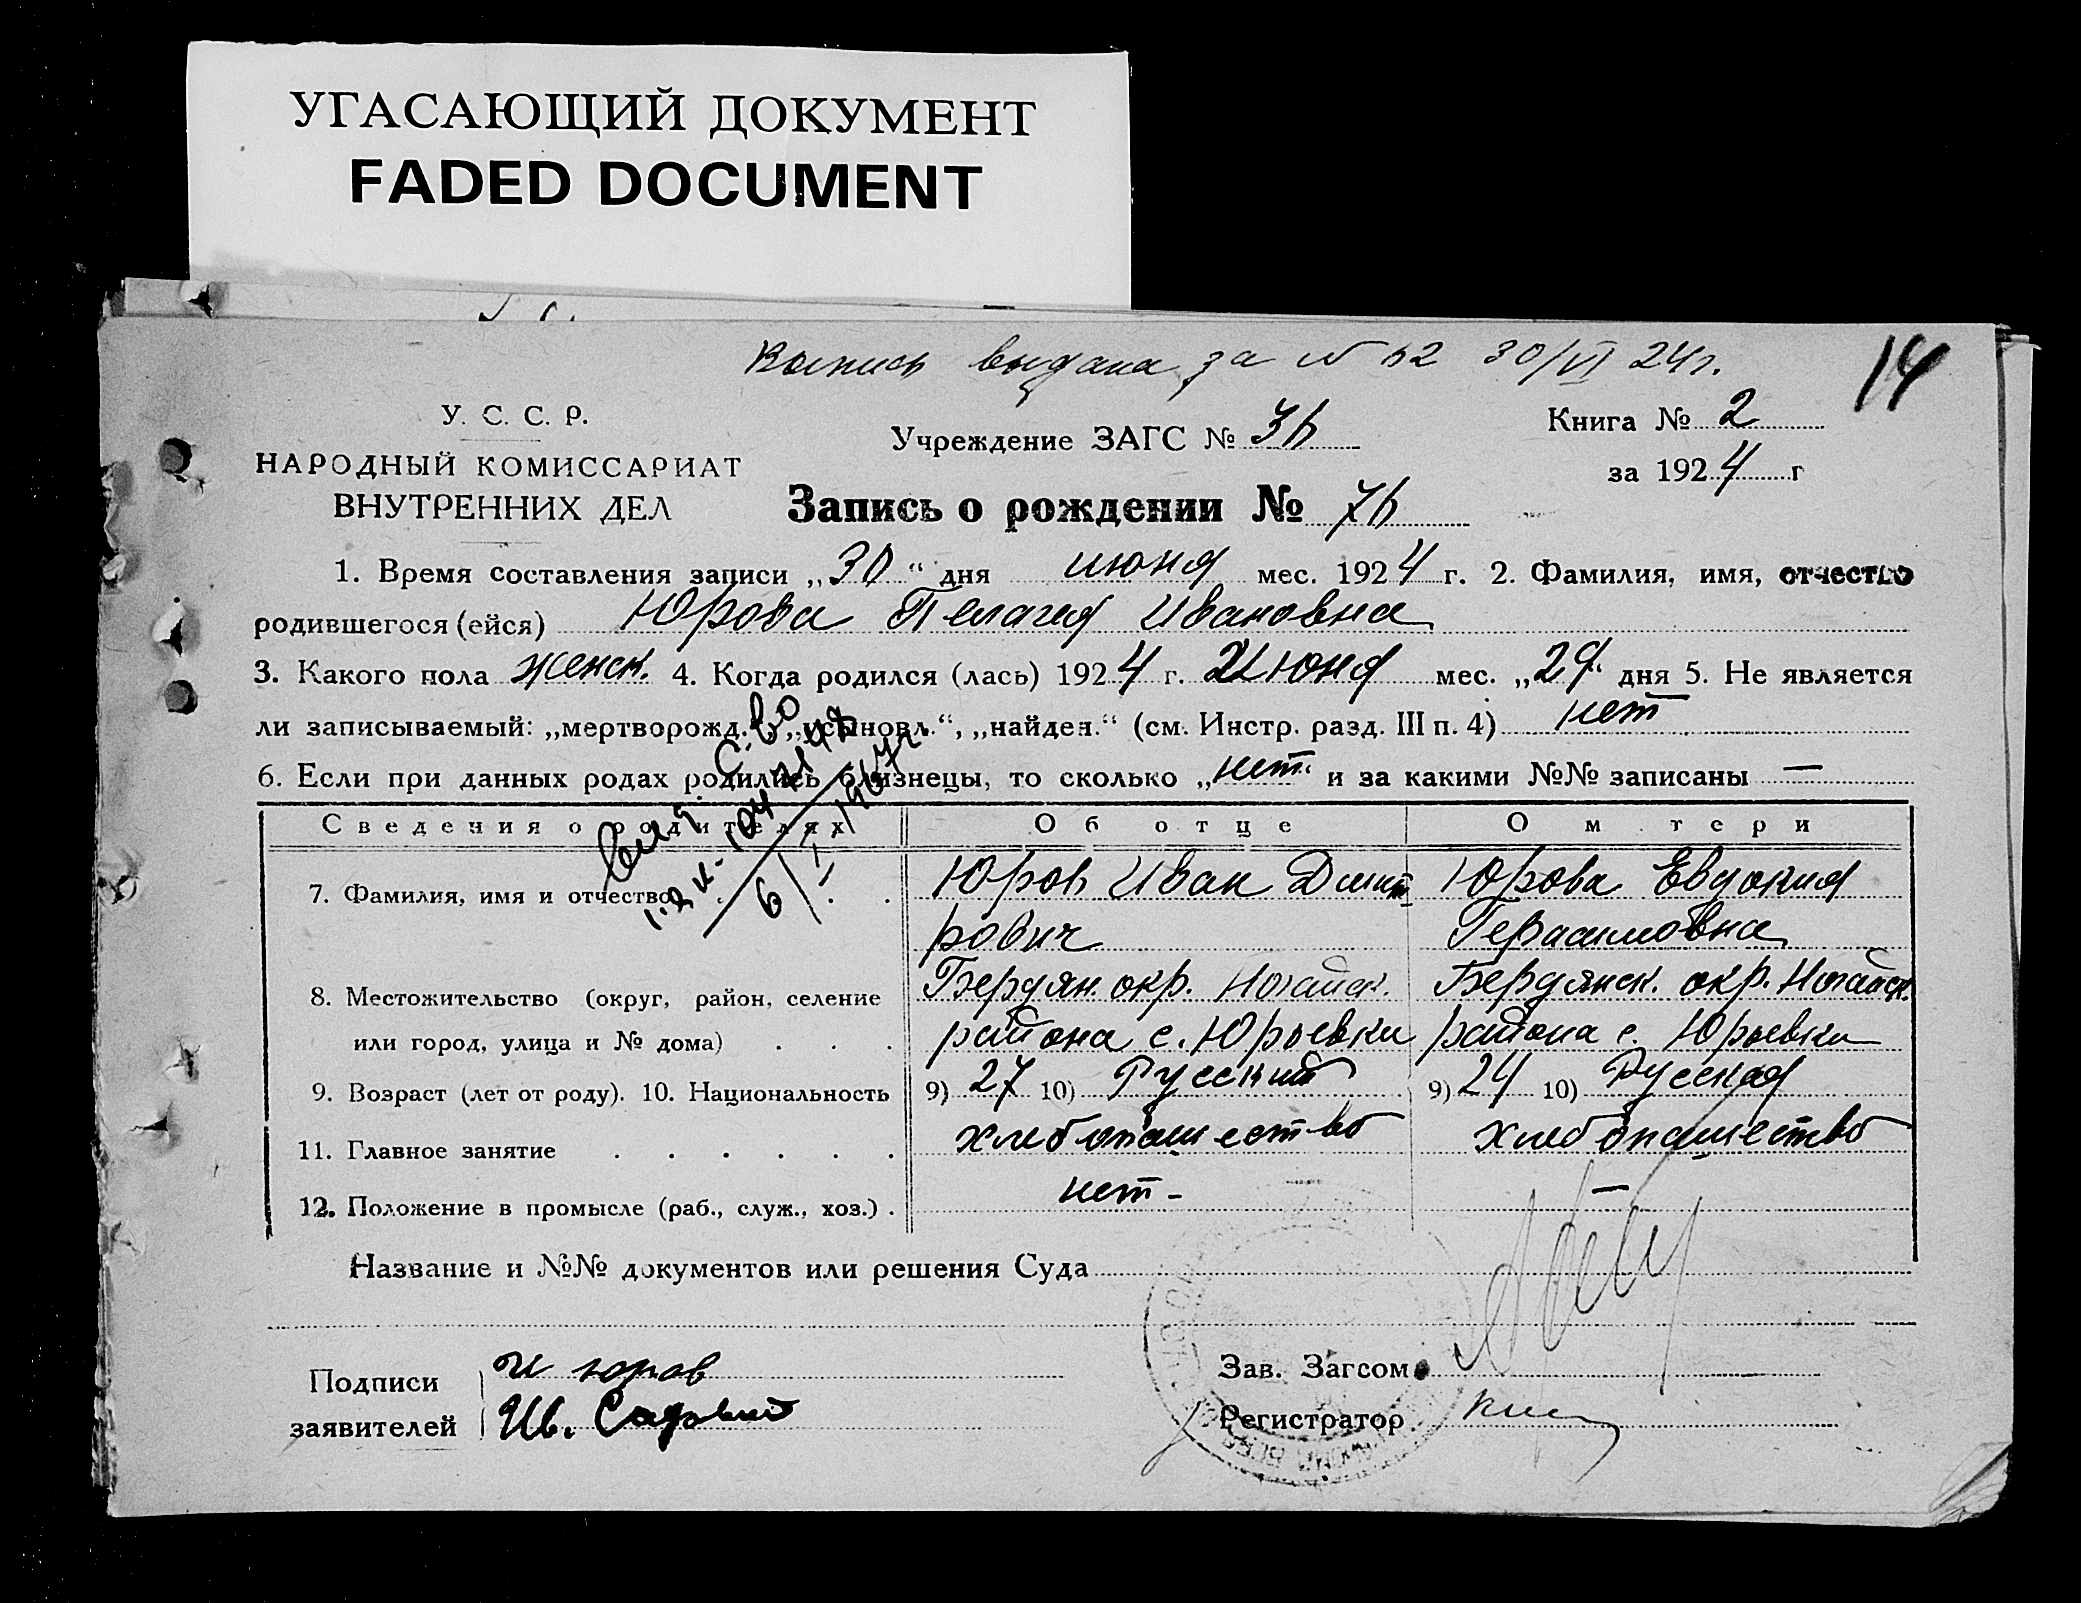 УГАСАЮЩИЙ ДОКУМЕНТ
FADED DOCUMENT
Выпись выдана за N 62 30/VI 24 г.
14
У. С. С. Р.
НАРОДНЫЙ КОМИССАРИАТ
ВНУТРЕННИХ ДЕЛ
Учреждение ЗАГС № 36
Книга № 2
за 1924 г
Запись о рождении № 76
1. Время составления записи „30“ дня июня мес. 1924 г. 2. Фамилия, имя, отчество
родившегося (ейся) Юрова Пелагея Ивановна
3. Какого пола женск. 4. Когда родился (лась) 1924 г. Июня мес. „29“ дня 5. Не является
ли записываемый: „мертворожд.“, „усыновл.“, „найден.“ (см. Инстр. разд. III п. 4) нет
6. Если при данных родах родились близнецы, то сколько „нет“ и за какими №№ записаны —
С-во
6/I-1967г.
Сведения о родителях Об отце О м тери
7. Фамилия, имя и отчество . . . Юров Иван Дмит Юрова Евдокия
рович Герасимовна
8. Местожительство (округ, район, селение Бердян. окр. Ногайск. Бердянск. окр. Ногайск.
или город, улица и № дома) . . . района с. Юрьевки района с. Юрьевки
9. Возраст (лет от роду). 10. Национальность 9) 27 10) Русский 9) 24 10) Русская
11. Главное занятие . . . . . . хлебопашество хлебопашество
12. Положение в промысле (раб., служ., хоз.) . нет - —
Название и №№ документов или решения Суда
Подписи
заявителей
И Юров
Ив.
Зав. Загсом
Регистратор